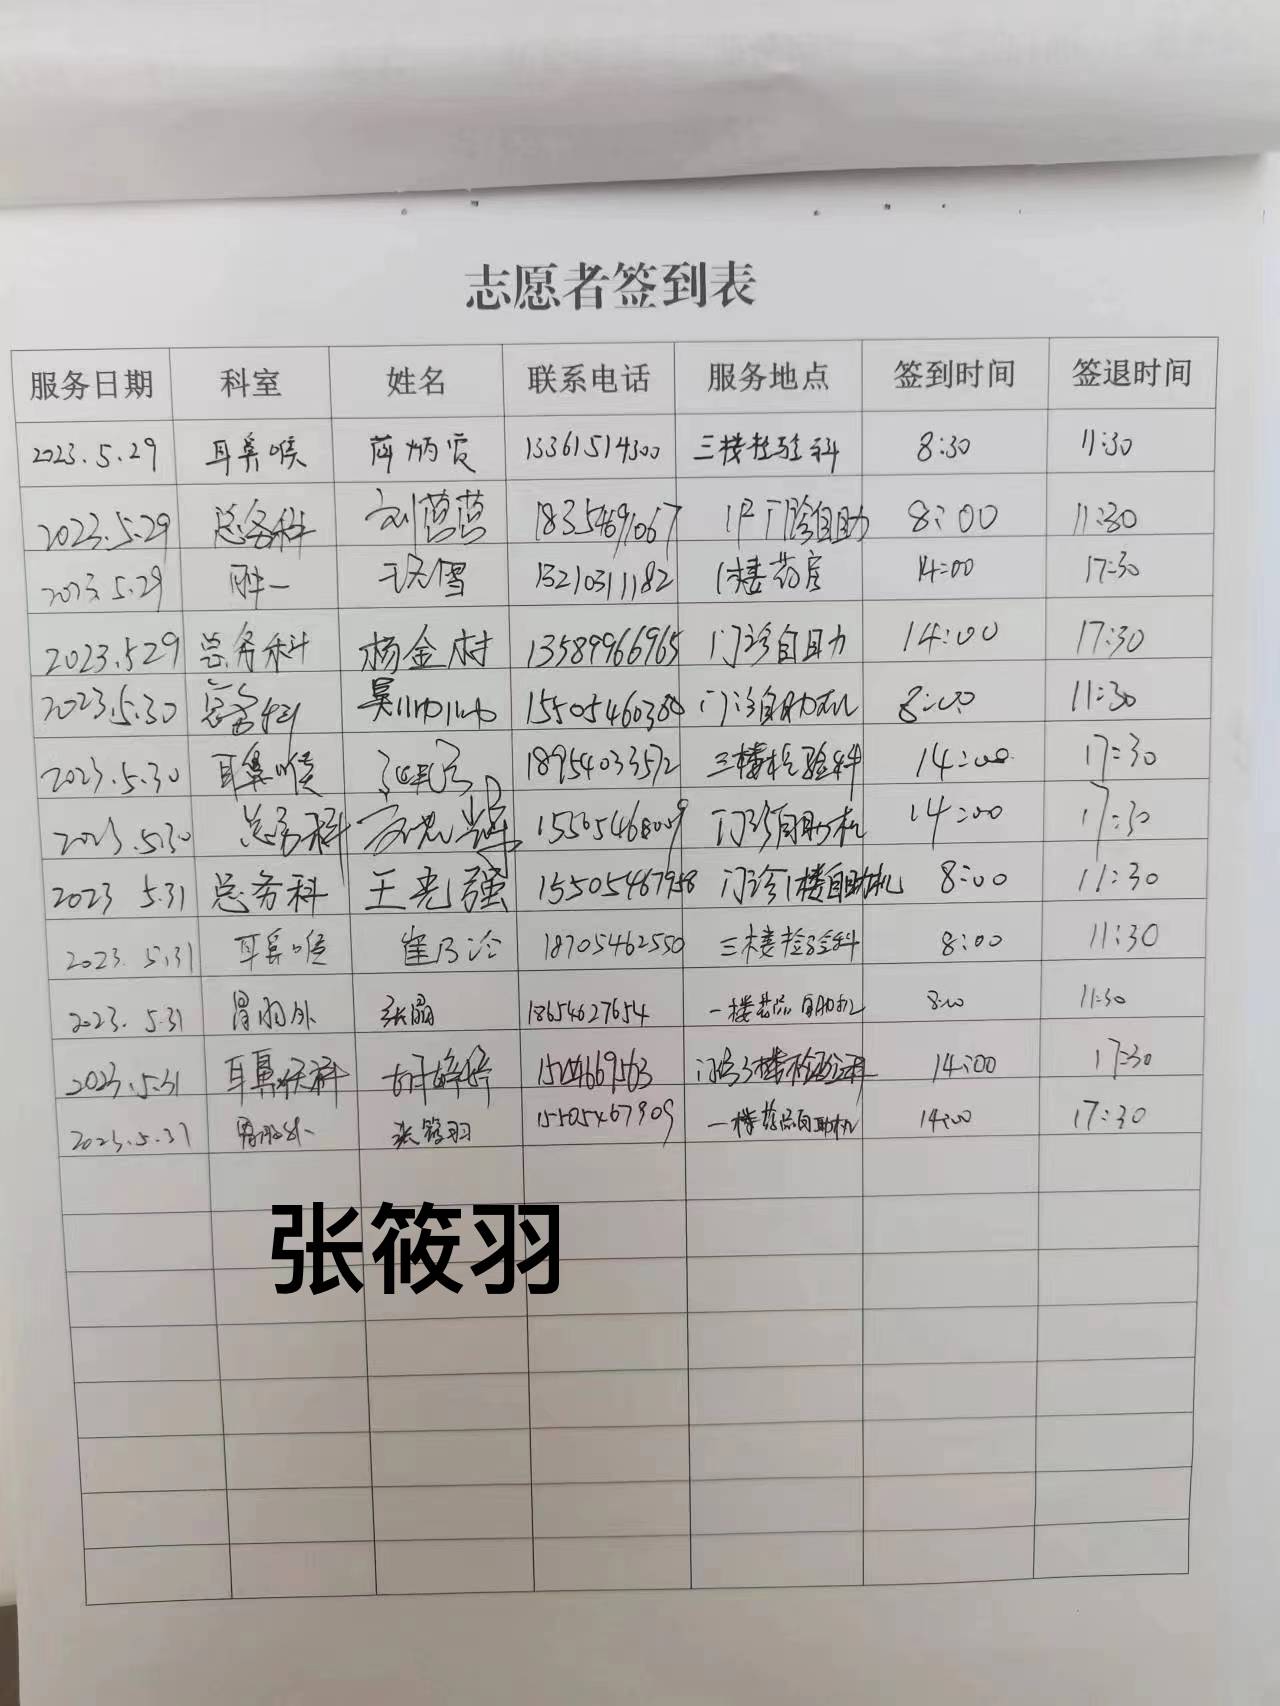 志愿者签到表
服务日期 科室 姓名 联系电话 服务地点 签到时间 签退时间
2023.5.29 耳鼻喉 炳霞 13361514300 三楼检验科 8:30 11:30
2023.5.29 总务科 刘茜茜 18354691067 1F门诊自助 8:00 11:30
2023.5.29 1楼药房 13210311182 14:00 17:30
2023.5.29 总务科 杨金村 13589966965 门诊自助 14:00 17:30
2023.5.30 总务科 吴帅帅 15505460380 门诊自助机 8:00 11:30
2023.5.30 耳鼻喉 18954033572 三楼检验科 14:00 17:30
2023.5.30 总务科 门诊自助机 14:00 17:30
2023 5.31 总务科 王光强 15505467958 门诊1楼自助机 8:00 11:30
2023.5.31 耳鼻喉 崔乃冷 18705462550 三楼检验科 8:00 11:30
2023.5.31 胃肠外 张晶 18654627654 一楼药品自助机 8:00 11:30
2023.5.31 耳鼻喉科 婷婷 门诊3楼检验科 14:00 17:30
2023.5.31 胃肠外 张筱羽 15505467909 一楼药品自助机 14:00 17:30
张筱羽